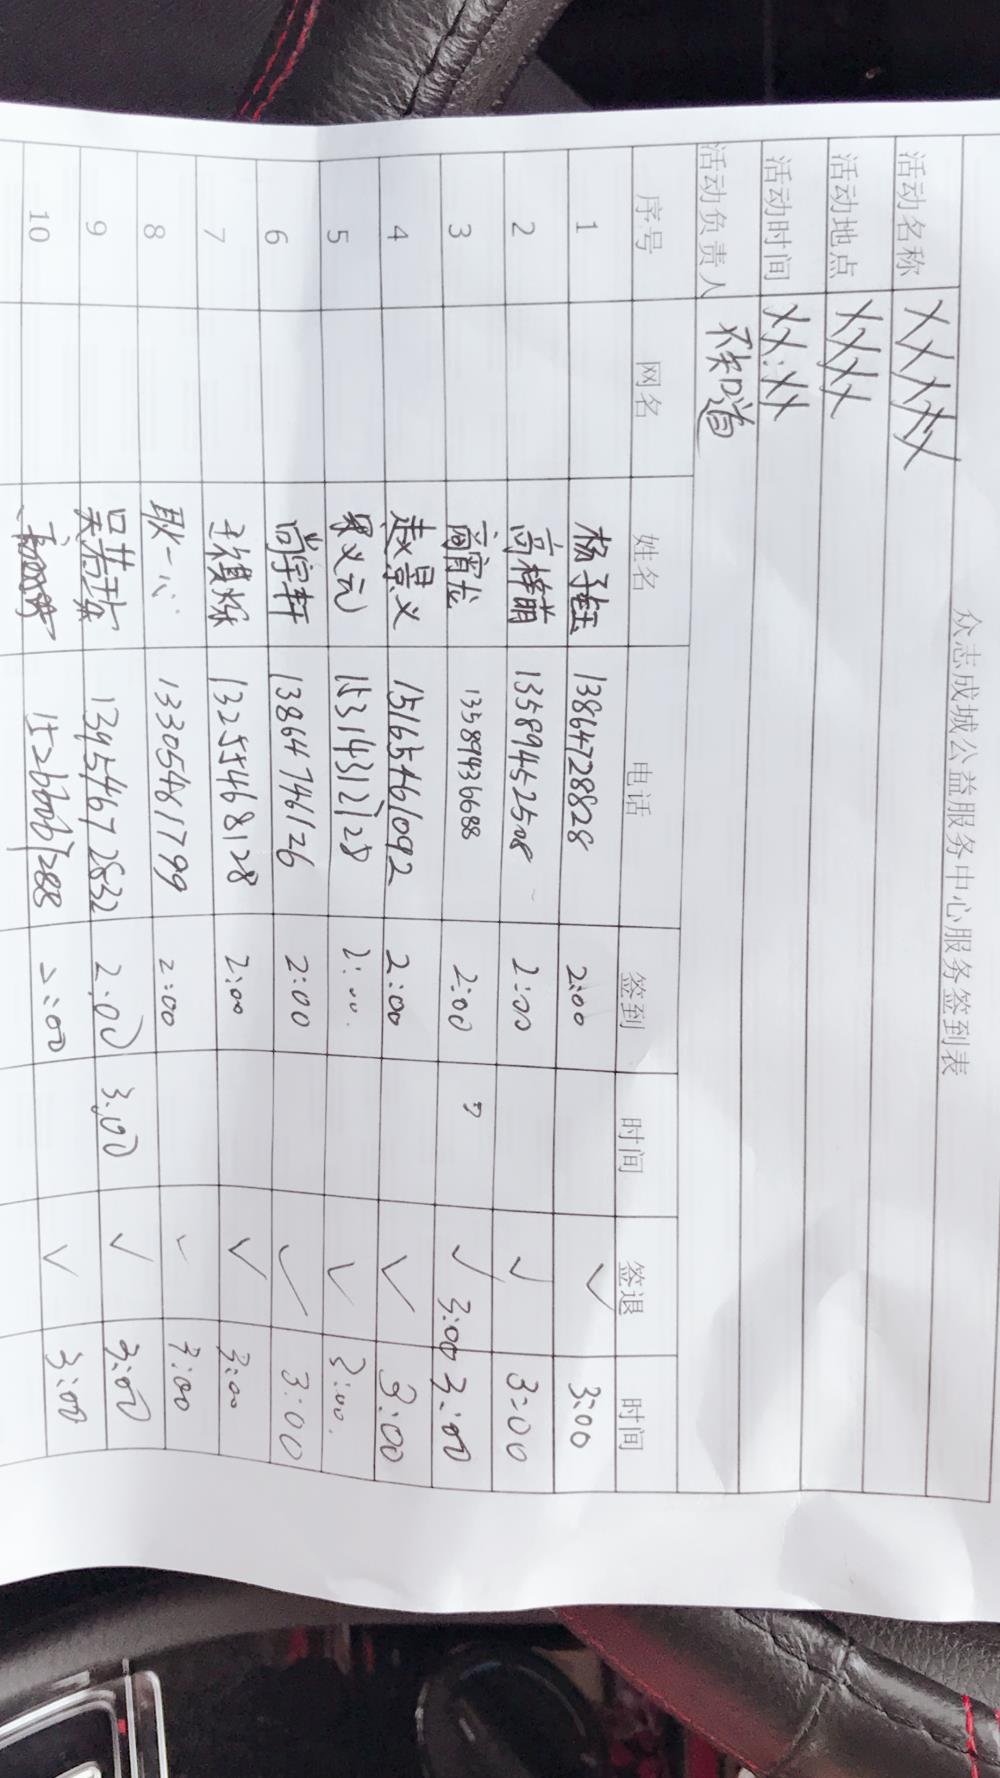 众志成城公益服务中心服务签到表
活动名称 XXXXX
活动地点 XXXX
活动时间 XX:XX
活动负责人 不知道
序号 网名 姓名 电话 签到 时间 签退 时间
1 杨子钰 13864728828 2:00 ✓ 3:00
2 高梓萌 13589452508 2:00 ✓ 3:00
3 阎宵龙 13589436688 2:00 ✓ 3:00 3:00
4 赵景义 15165461092 2:00 ✓ 3:00
5 义元 15314312128 2:00 ✓ 3:00
6 尚宇轩 13864746126 2:00 ✓ 3:00
7 13255468128 2:00 ✓ 3:00
8 耿一心 13305461799 2:00 ✓ 3:00
9 13954672832 2:00 3:00 ✓ 3:00
10 2:00 ✓ 3:00